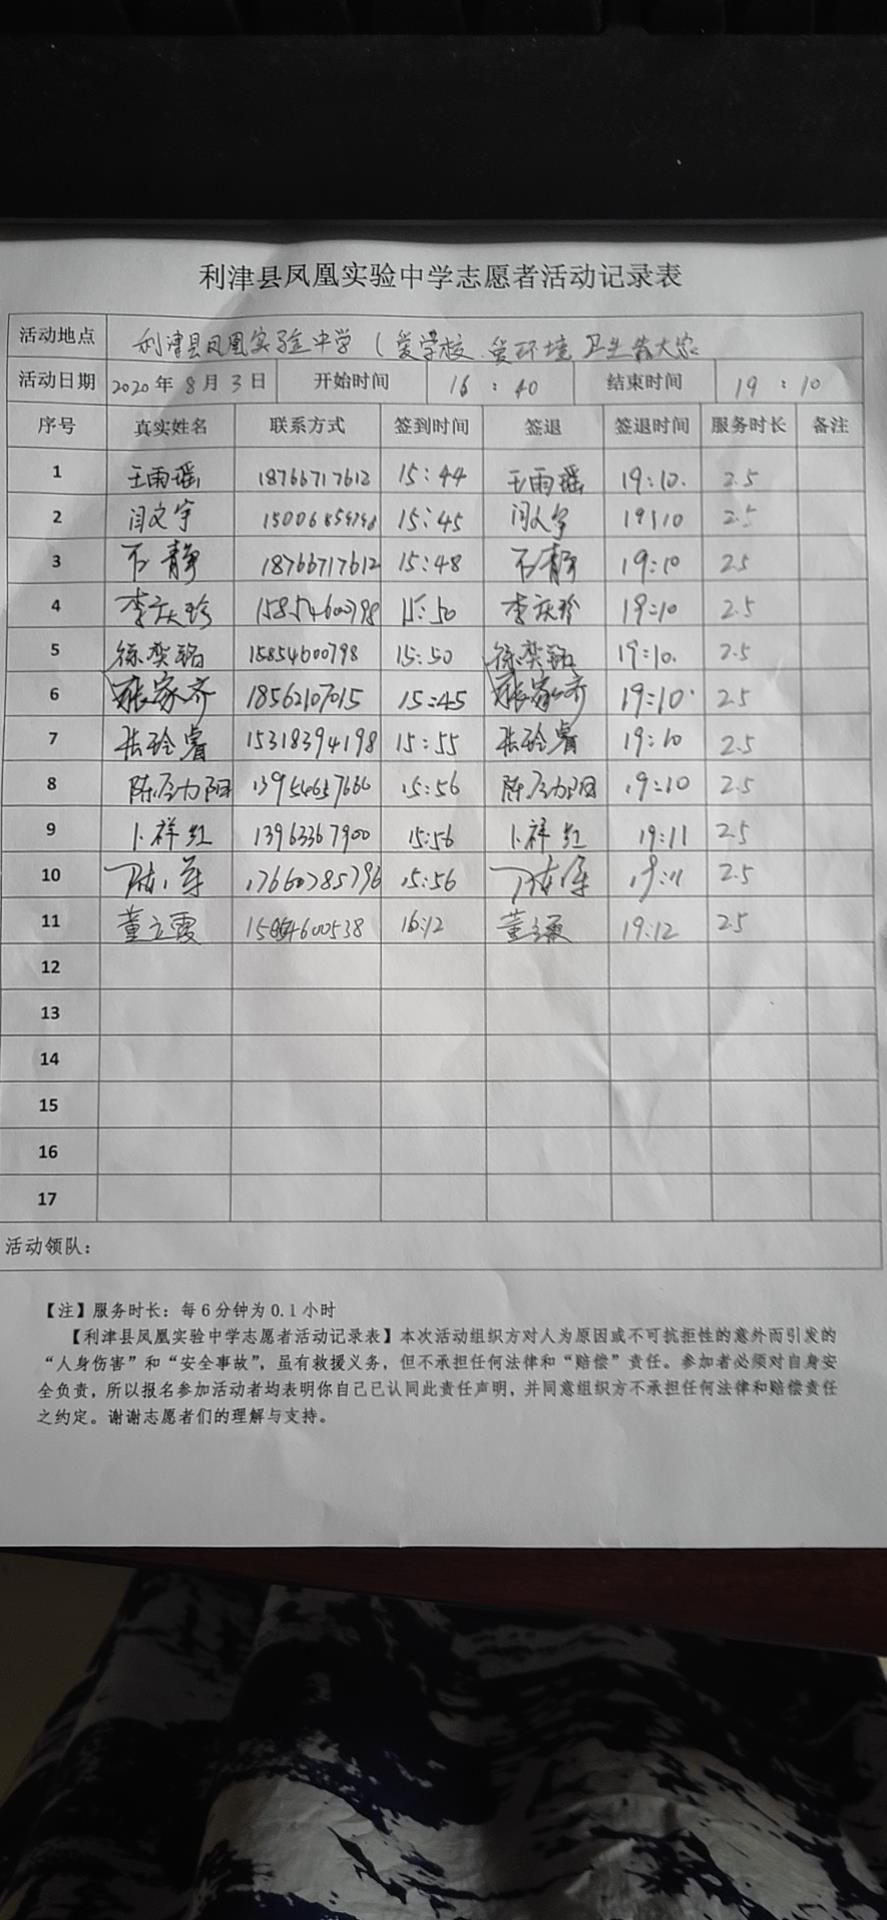 利津县凤凰实验中学志愿者活动记录表
活动地点 利津县凤凰实验中学（爱学校 爱环境 卫生
活动日期 2020年8月3日 开始时间 16:40 结束时间 19:10
序号 真实姓名 联系方式 签到时间 签退 签退时间 服务时长 备注
1 王雨瑶 18766717612 15:44 王雨瑶 19:10. 2.5
2 闫文宇 15:45 闫文宇 19:10 2.5
3 石静 18766717612 15:48 石静 19:10 2.5
4 李庆珍 15854600798 15:50 李庆珍 19:10 2.5
5 徐奕铭 15854600798 15:50 徐奕铭 19:10. 2.5
6 张家齐 18562107015 15:45 张家齐 19:10 2.5
7 张玲睿 15318394198 15:55 张玲睿 19:10 2.5
8 15:56 19:10 2.5
9 卜祥红 13963367900 15:56 卜祥红 19:11 2.5
10 17660785796 15:56 19:11 2.5
11 董立霞 16:12 董立霞 19:12 2.5
12
13
14
15
16
17
活动领队：
【注】服务时长：每6分钟为0.1小时
【利津县凤凰实验中学志愿者活动记录表】本次活动组织方对人为原因或不可抗拒性的意外而引发的
“人身伤害”和“安全事故”，虽有救援义务，但不承担任何法律和“赔偿”责任。参加者必须对自身安
全负责，所以报名参加活动者均表明你自己已认同此责任声明，并同意组织方不承担任何法律和赔偿责任
之约定。谢谢志愿者们的理解与支持。